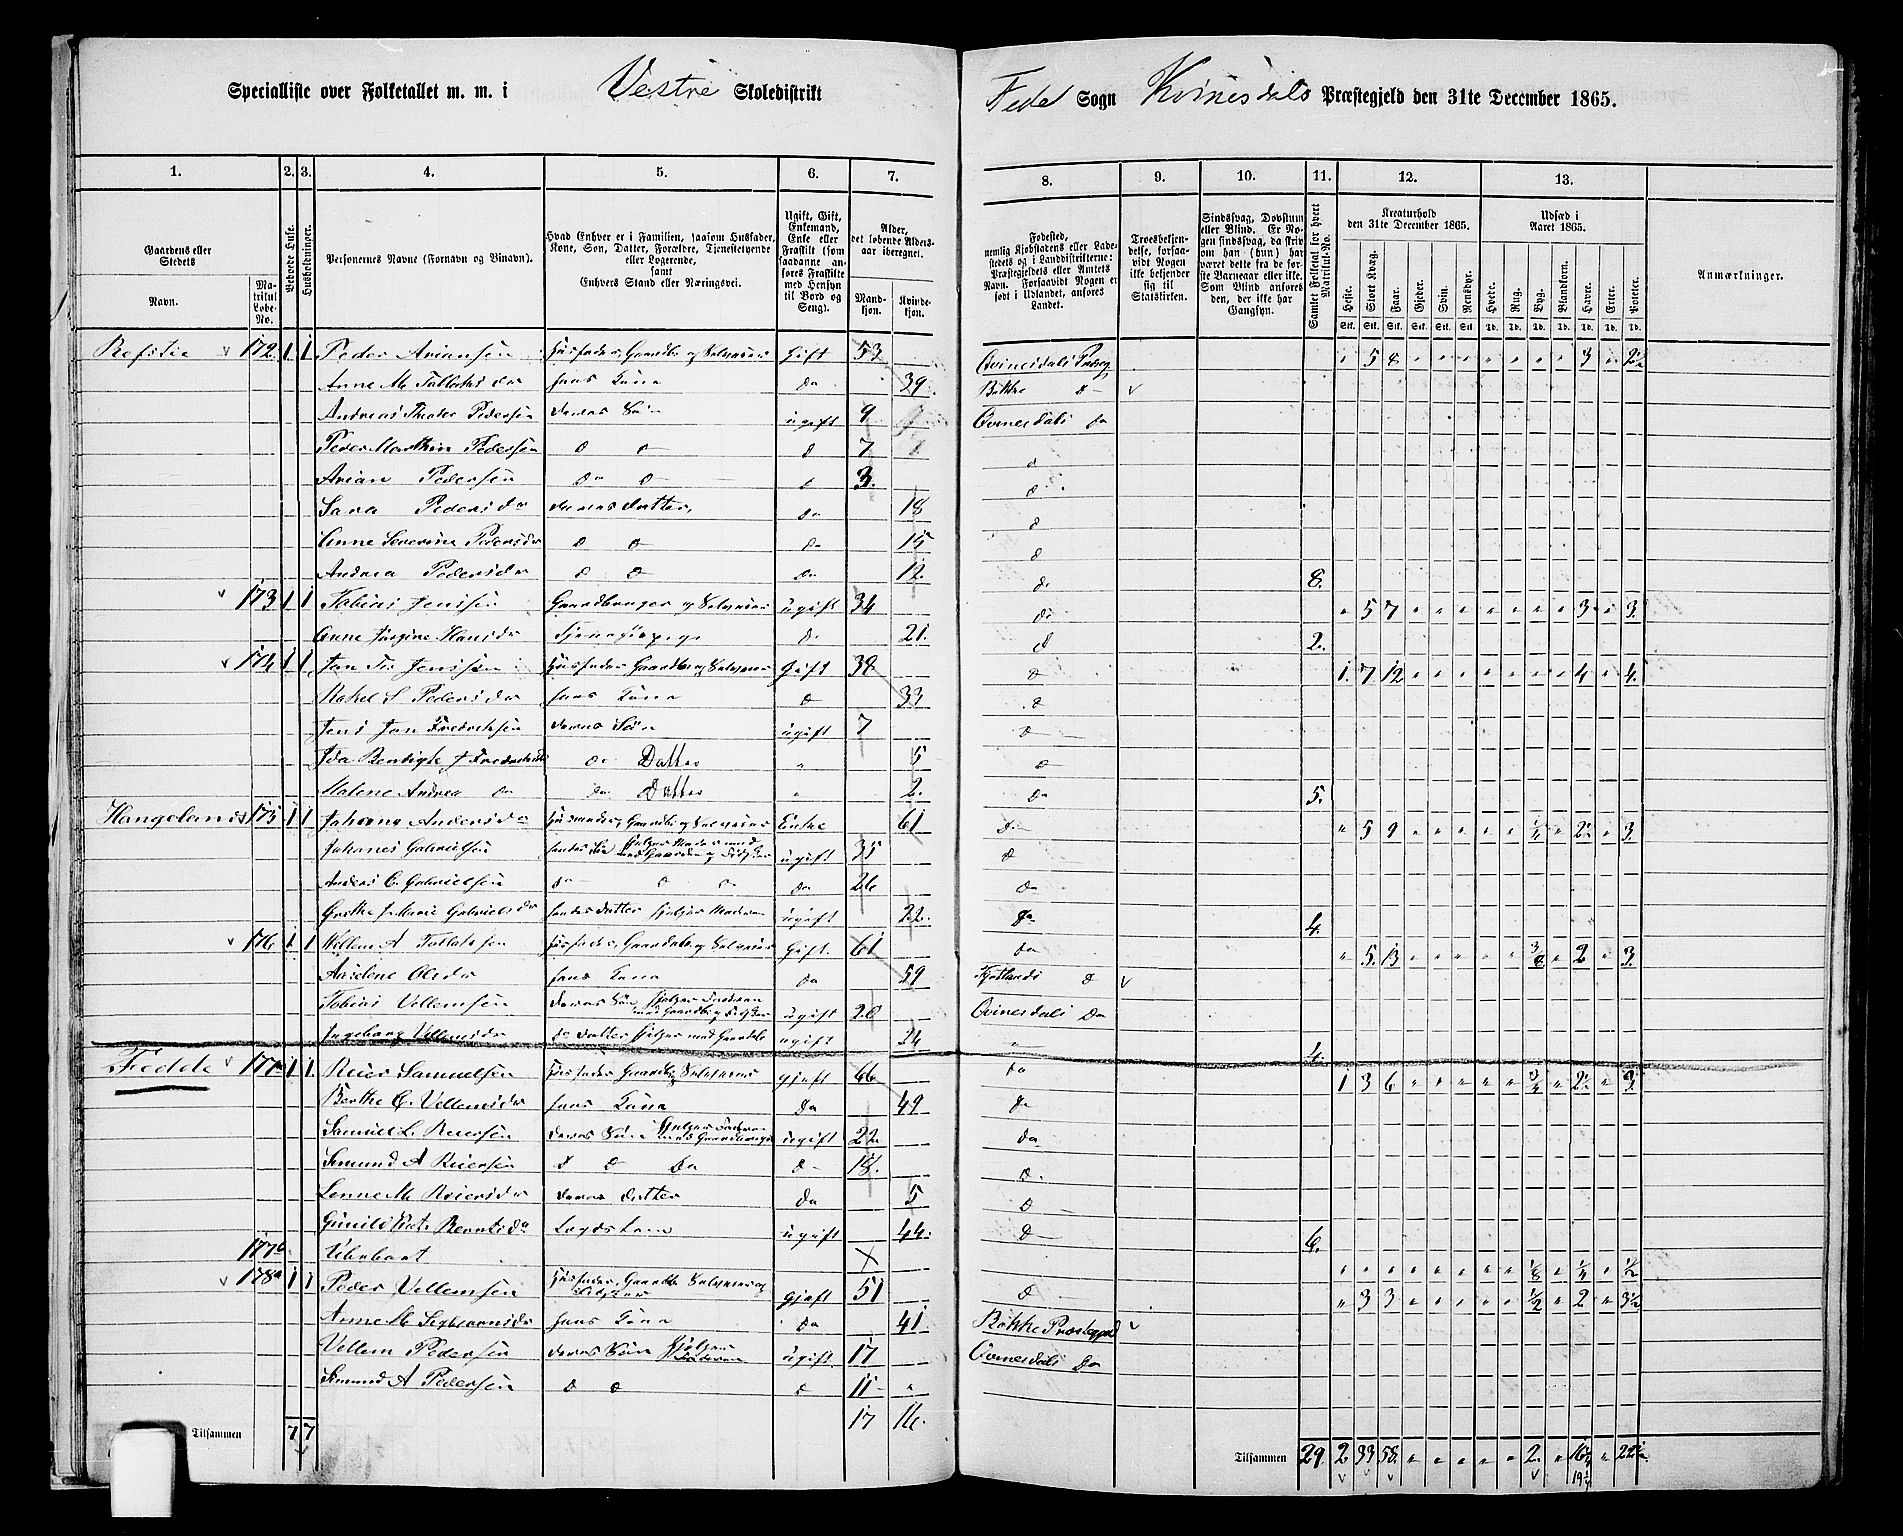 Specialliste over Folketallet m. m. i Vestre Skoledistrikt
Fede Sogn Kvinesdals Præstegjeld den 31te December 1865.
1. 2. 3. 4. 5. 6. 7.
8. 9. 10. 11. 12. 13.
Gaardens eller Stedets
Navn.
Matrikul Løbe-No.
Beboede Huse.
Husholdninger.
Personernes Navne (Fornavn og Binavn).
Hvad Enhver er i Familien, saasom Husfader, Kone, Søn, Datter, Forældre, Tjenestetyende eller Logerende,
samt
Enhvers Stand eller Næringsvei.
Ugift, Gift, Enkemand, Enke eller Fraskilt (somsaadanne anføres Fraskilte med Hensyn til Bord og Seng).
Alder, det løbende Aldersaar iberegnet.
Mandkjøn.
Kvindekjøn.
Fødested,
nemlig Kjøbstadens eller Ladestedets og i Landdistrikterne: Præstegjeldets eller Amtets Navn. Forsaavidt Nogen er født i Udlandet, anføres Landet.
Troesbekjendelse, forsaavidt Nogen ikke bekjender sig til Statskirken.
Sindssvag, Døvstum eller Blind. Er Nogen sindssvag, da skrives om han (hun) har været dette fra de første Barneaar eller ikke. Som Blind anføres den, der ikke har Gangsyn.
Samlet Folketal for hvert Matrikul-No.
Kreaturhold
den 31te December 1865.
Heste. Stort Kvæg. Faar. Gjeder. Svin. Rensdyr.
Udsæd i
Aaret 1865.
Hvede. Rug. Byg. Blandkorn. Havre. Erter. Poteter.
Anmærkninger.
Refstie 172 1 1 Peder Ariansen Husfader, Gaardbr og Selveier Gift 53 Qvinesdals Præsteg " 5 8 3 2½
Anne M. Tollaksdr hans Kone Do 39. Bakke D
Andreas Theodor Pedersen deres Søn ugift 9 Qvinesdals Do
Peder Marthin Pedersen D D D 7 D
Arian Pedersen Do D D 3. D
Sara Pedersdr deres Datter, Do 18 D
Anne Severine Pedersdr D D Do 15 D
Andrea Pedersdr D D Do 12. D 8.
173 1 1 Tobias Jensen Gaardbruger og Selveier ugift 34 Do " 5 7 3 3.
Anne Jørgine Hansdr Tjenestepige Do 21. D 2.
174 1 1 Jan Jensen Husfader Gaardbr og Selveier Gift 38 D 1. 7 12 4 4.
Rakel S. Pedersdr hans Kone D 33 D
Jens Jan Fredriksen deres Søn ugift 7 D
Ida Bendigte J Fredriksdr Do Datter " 5 D
Malene Andrea Do Do Datter " 2. Do 5.
Hangeland 175 1 1 Johanne Andersdr Husmoder, Gaardbr og Selveier Enke 61 D " 5 9 ¼ 2½ 3.
Johanes Gabrielsen hendes Søn hjelper Moder med Gaarden og Fiskeri ugift 35 D
Anders C. Gabrielsen Do D D Do 26 Do
Grethe J Marie Gabrielsdr hendes Datter hjelper Moderen ugift 22. Do 4.
176 1. 1 Vellem A Tollaksen Husfader, Gaardbr og Selveier Gift. 61 Do " 5. 13 2 3.
Aaselene Olsdr hans Kone Do 59 D
Tobias Vellemsen deres Søn hjelper Faderen med Gaardbr og Fiskeri ugift 28 Qvinesdals Do
Ingeborg Vellemsdr Do Datter hjelper med Gaardbr ugift 24 " 4.
Fedde 177a 1 1. Reier Samuelsen Husfader Gaardbr Selveier gift 66 Do 1 3 6 ¾ 2½ 3.
Berthe C. Vellemsdr hans Kone Do 49 Do
Samuel L. Reiersen deres Søn hjelper Faderen med Gaardbruget ugift 22 Do
Semund A Reiersen D D Do D 18. D
Lenne M. Reiersdr deres Datter Do 5 D
Gunild Berntsdr Lægdslem ugift 44. D 6.
177b Ubeboet X " ⅛ ¼ ½
178a 1 1 Peder Vellemsen Husfader, Gaardbr Selveier og Fisker gift 51 D " 3 3 ½ 2 3½
Anne M. hans Kone Do 41 Bakke Præstegjeld
Vellem Pedersen deres Søn hjelper Faderen ugift 17 Qvinesdals Do
Semund A Pedersen D D D 11
17 16.
Tilsammen 7 7
Tilsammen 29 2 33 58. 2. 16¼ 22½
19¼